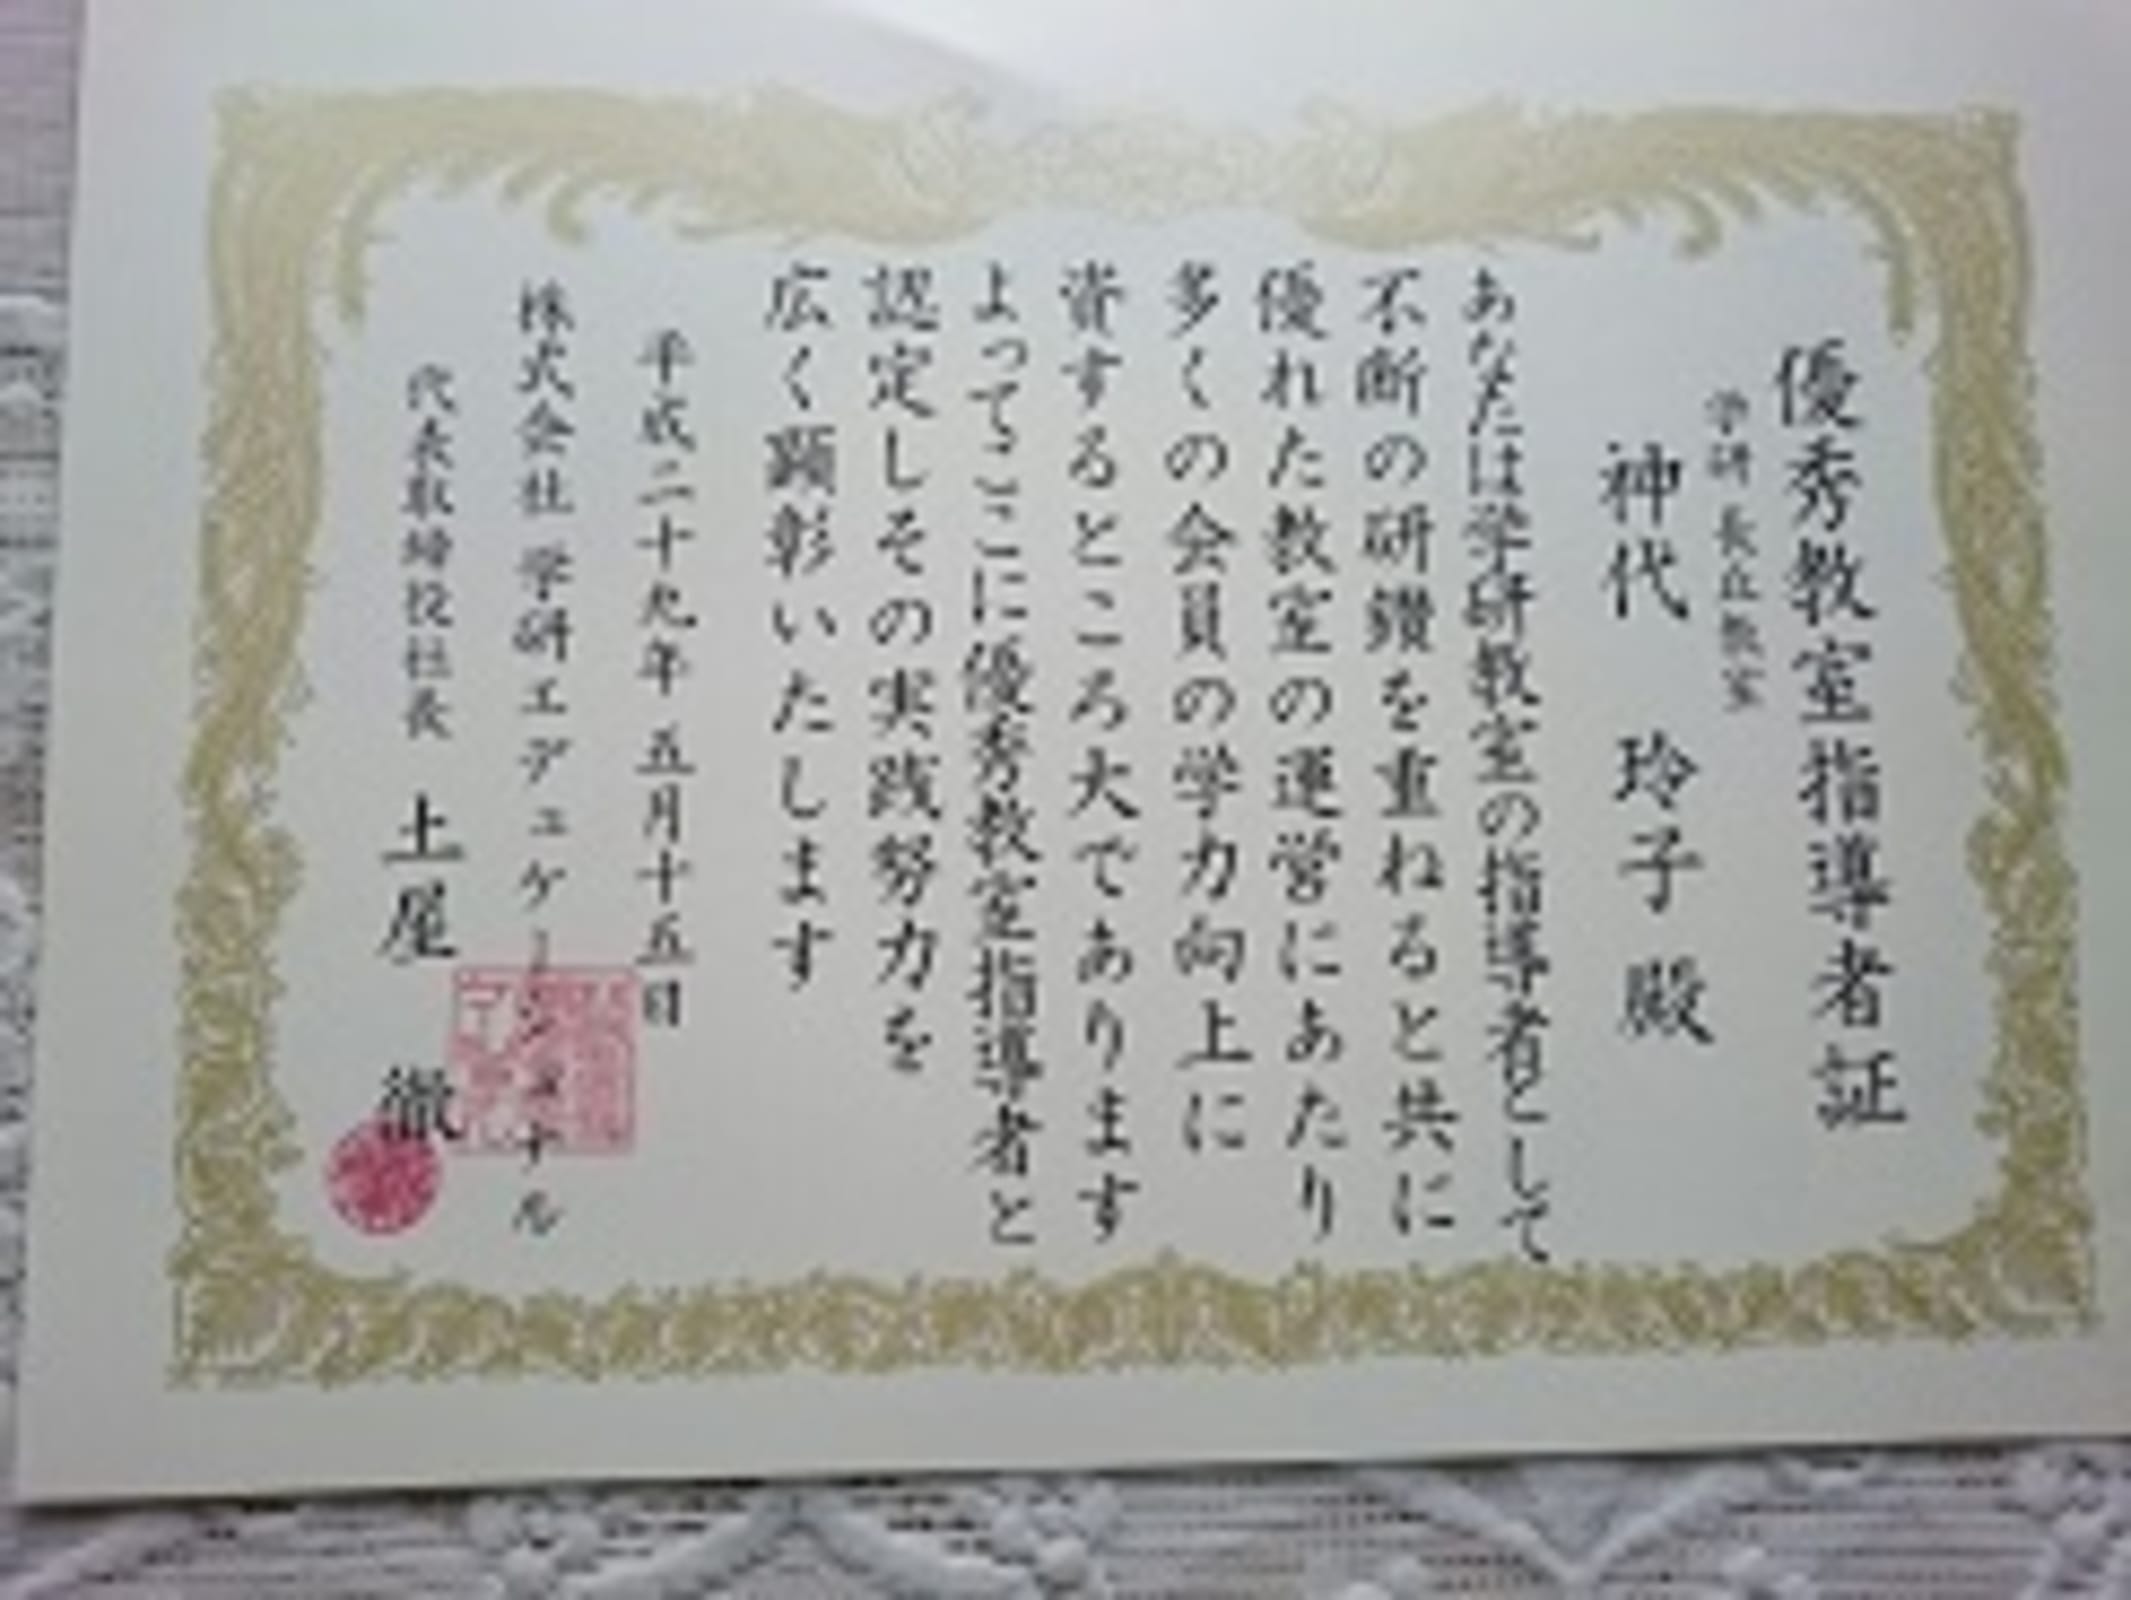 優秀教室指導者証
学研 長丘教室
神代 玲子 殿
あなたは学研教室の指導者として
不断の研鑽を重ねると共に
優れた教室の運営にあたり
多くの会員の学力向上に
資するところ大であります
よってここに優秀教室指導者と
認定しその実践努力を
広く顕彰いたします
平成二十九年 五月十五日
株式会社 学研エデュケーショナル
代表取締役社長 土屋 徹